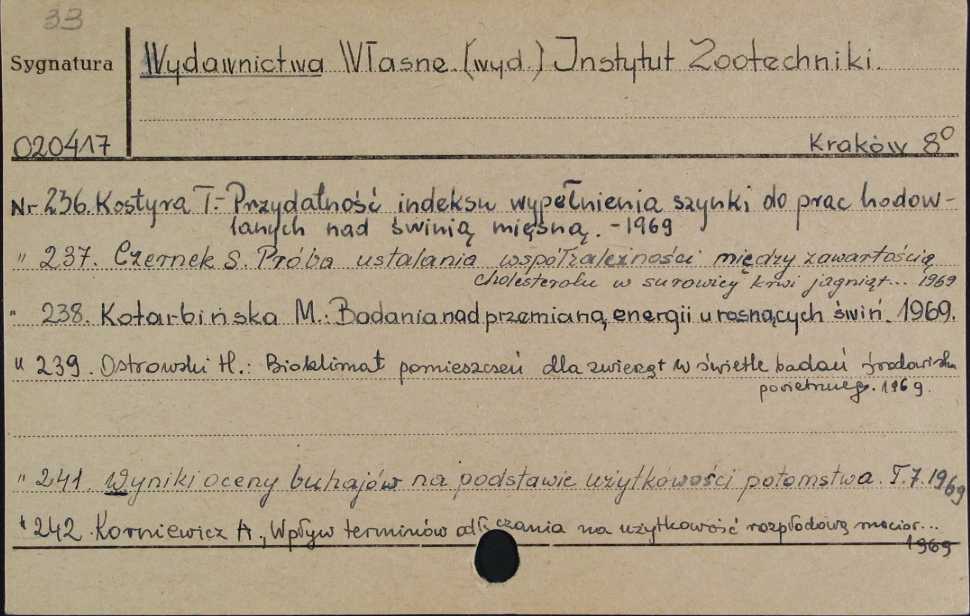 33
Sygnatura
Wydawnictwa Własne. (wyd.) Instytut Zootechniki.
020417
Kraków 8°
Nr 236. Kostyra T.- Przydatność indeksu wypełnienia szynki do prac hodow-
lanych nad świnią mięsną. - 1969
" 237. Czernek S. Próba ustalania współzależności między zawartością
cholesterolu w surowicy krwi jagniąt... 1969
" 238. Kotarbińska M.: Badania nad przemianą energii u rosnących świń. 1969.
" 239. Ostrowski H.: Bioklimat pomieszczeń dla zwierząt w świetle badań środowiska
powietrznego. 1969.
" 241. Wyniki oceny buhajów na podstawie użytkowości potomstwa. T.7. 1969
" 242. Korniewicz A., Wpływ terminów odłączania na użytkowość rozpłodową macior...
1969